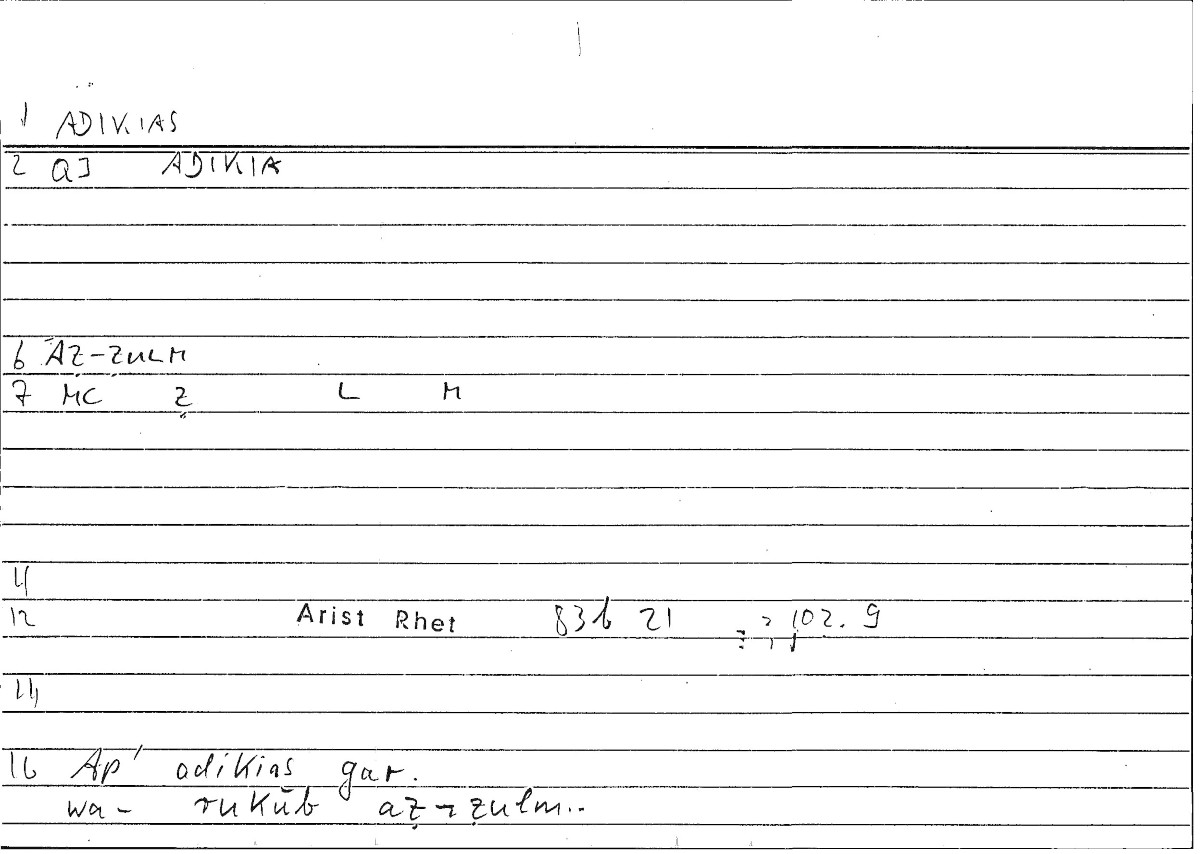 1 ADIKIAS
2 QJ ADIKIA
6 AẒ-ẒULM
7 MC Ẓ L M
11
12 Arist Rhet 83b 21 102.9
14
16 Ap' adikias gar.
wa- rukūb aẓ-ẓulm..